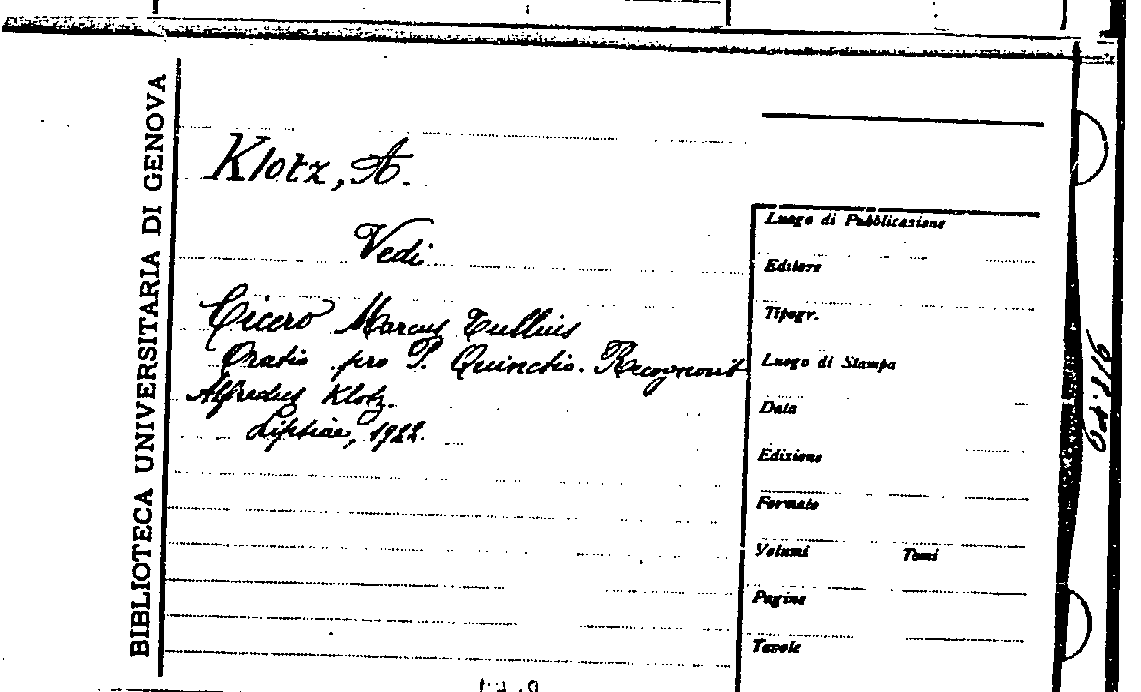 BIBLIOTECA UNIVERSITARIA DI GENOVA
Klotz, A.
Vedi
Cicero Marcus Tullius
Oratio pro P. Quinctio. Recognovit
Alfredus Klotz.
Lipsiae, 1922.
Luogo di Pubblicazione
Editore
Tipogr.
Luogo di Stampa
Data
Edizione
Formato
Volumi Tomi
Pagine
Tavole